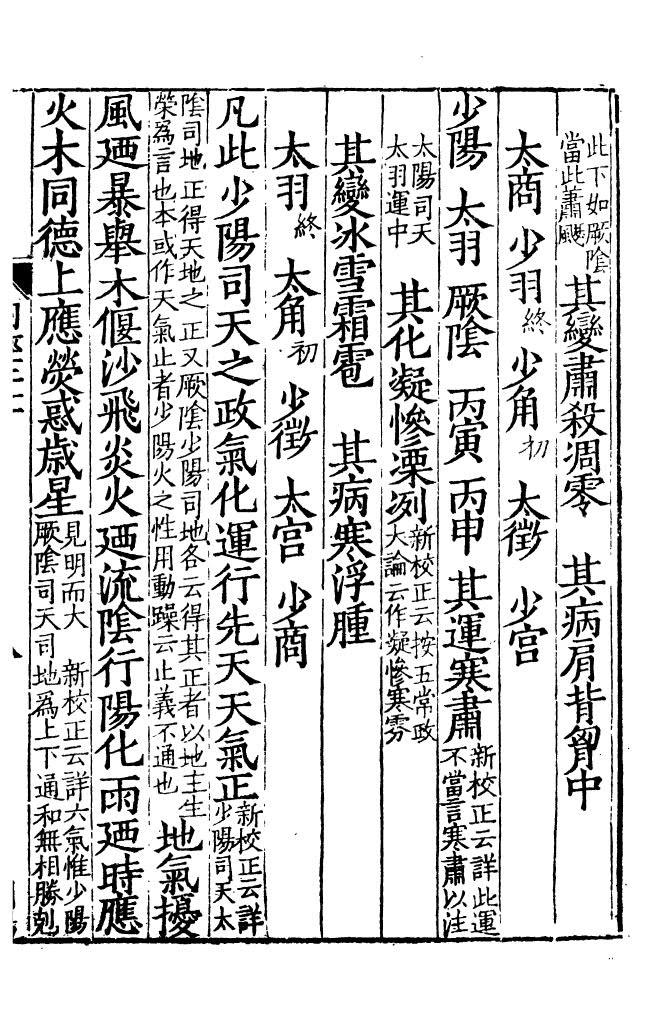 此下如厥陰當此肅飋其變肅殺凋零　其病肩背胷中
太商　少羽終　少角初　太徵　少宫
少陽　太羽　厥陰　丙寅　丙申　其運寒肅新校正云詳此運不當言寒肅以注
太陽司天太羽運中　其化凝慘凓冽新校正云按五常政大論云作凝慘寒雰
其變冰雪霜雹　其病寒浮腫
太羽終　太角初　少徵　太宫　少商
凡此少陽司天之政氣化運行先天天氣正新校正云詳少陽司天太
陰司地正得天地之正又厥陰少陽司地各云得其正者以地主生榮爲言也本或作天氣止者少陽火之性用動躁云止義不通也地氣擾
風廼暴舉木偃沙飛炎火廼流陰行陽化雨廼時應
火木同德上應熒惑歳星見明而大　新校正云詳六氣惟少陽厥陰司天司地爲上下通和無相勝剋